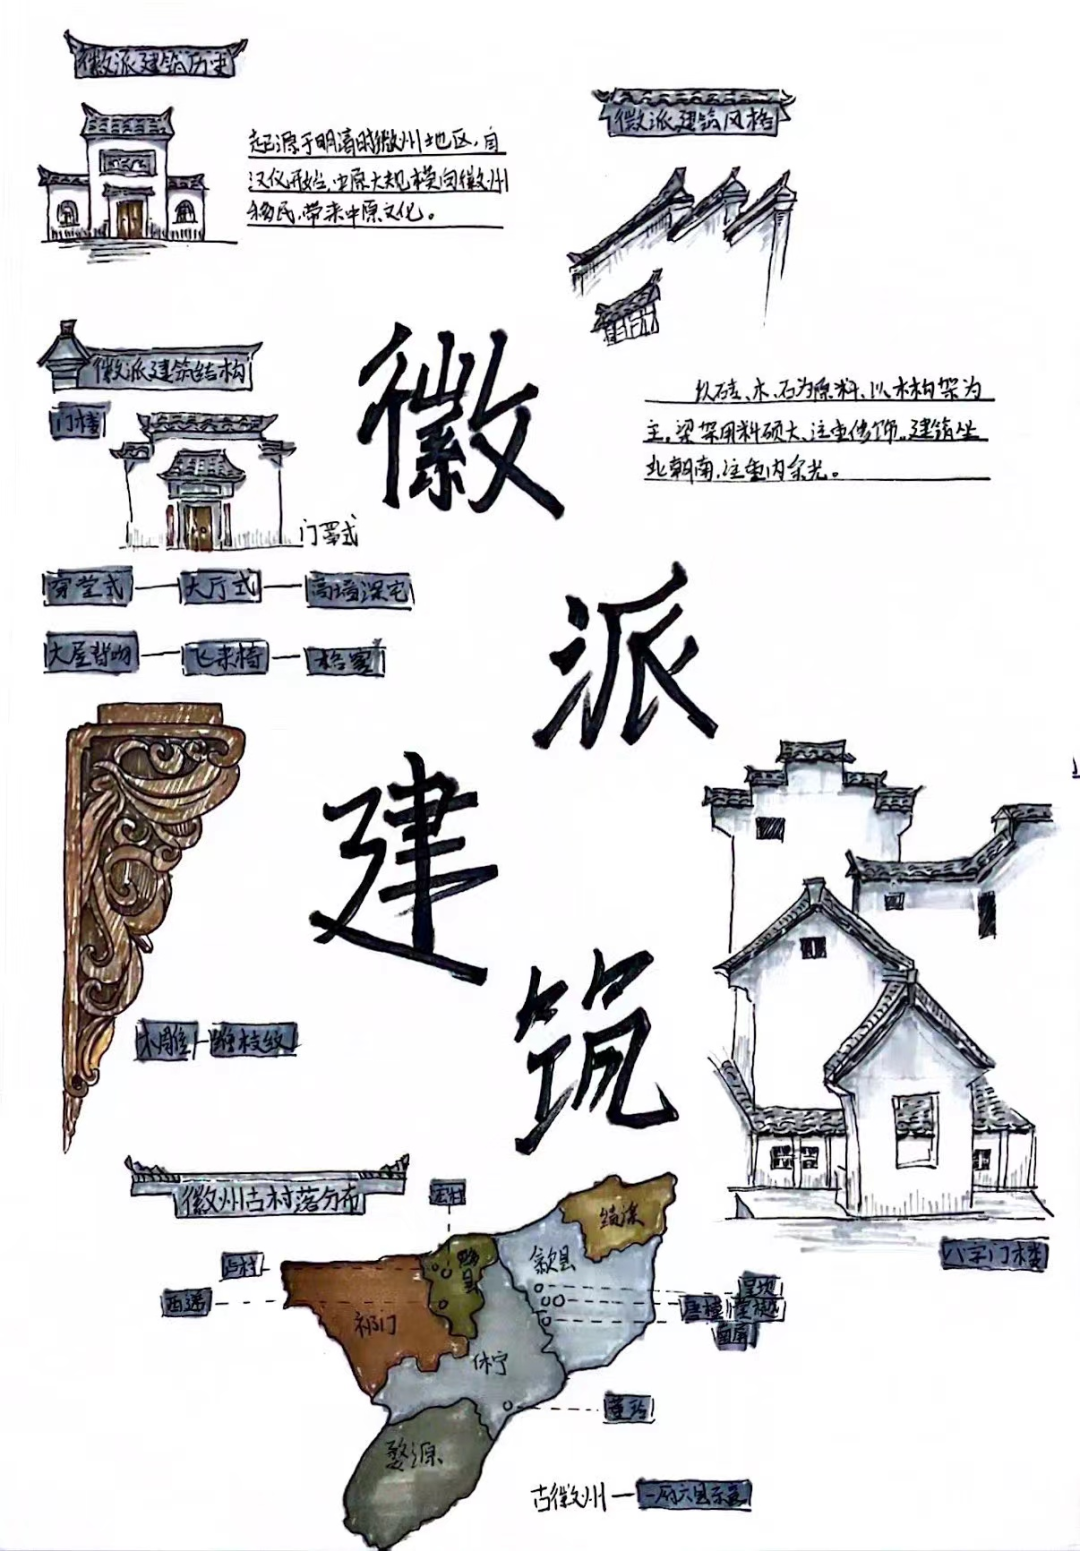 徽派建筑历史
起源于明清时徽州地区,自
汉仪开始,中原大规模向徽州
移民,带来中原文化。
徽派建筑风格
以砖、木、石为原料、以木构架为
主,梁架用料硕大、注重修饰。建筑坐
北朝南,注重内采光。
徽派建筑结构
门楼
门罩式
穿堂式
大厅式
高墙深宅
大屋脊吻
飞来椅
徽
派
建
筑
木雕
雕枝纹
八字门楼
徽州古村落分布
宏村
卢村
西递
绩溪
歙县
黟县
祁门
休宁
婺源
呈坎
唐模
棠樾
古徽州
一府六县示意